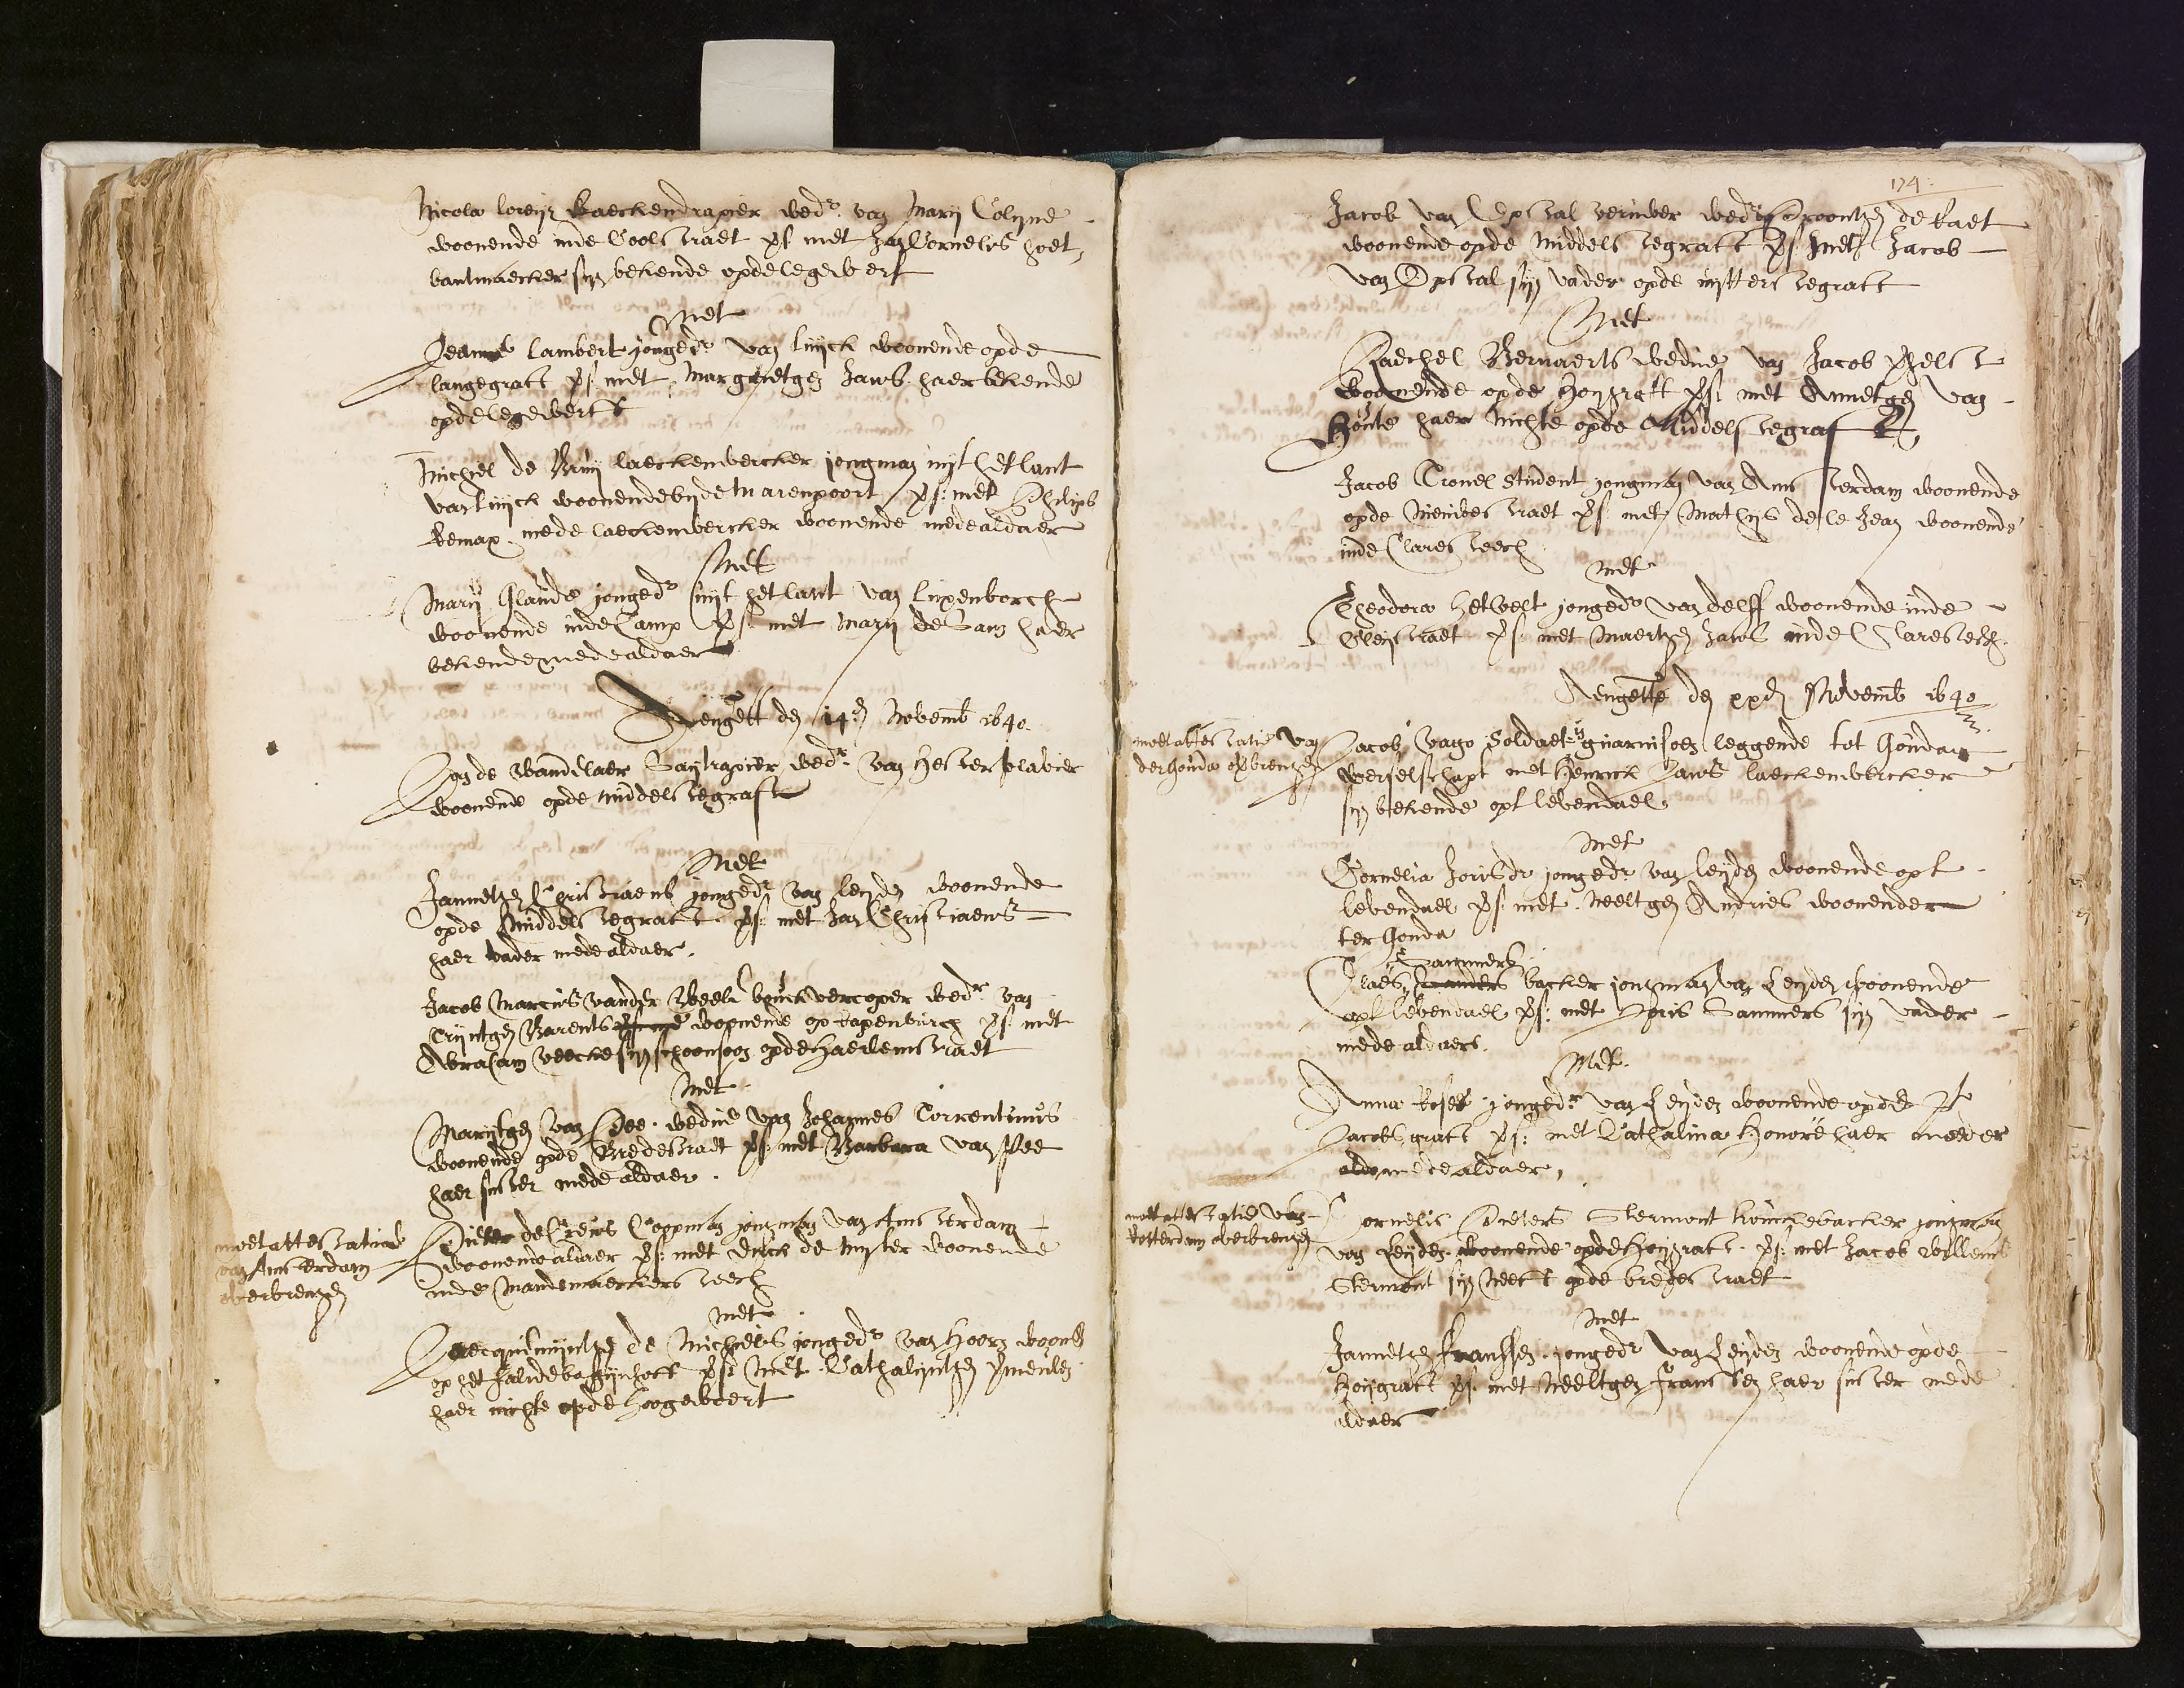 Nicola loreijs Baeckendrapier wedr. van Marij Colijne
woonende inde Coolstraet vs. met Jan Cornelis hoet,
bantmaecker sijn bekende opde legewerf
Met
Jeanne lambert jongedr. van Luijck woonende opde
langegraft vs. met Margrietgen Jans haer bekende
opde legewerft
Michiel de Brui laeckenwercker jongman uijt het lant
van Luijck woonende bijde Marenpoort vs. met Philips
Remax mede laeckenwercker woonende mede aldaer
Met
Marij Glaude jongedr uijt het lant van Lixenborch
woonende inde Camp vs. met Marij de haer
bekende mede aldaer
Aengett. den 14en Novemb. 1640.
Jan de Wandelaer Saijdrapier wedr. van Hester plavier
woonende opde Middelstegraft
Met
Jannetgen Christiaens jongedr. van Leyden woonende
opde Middelstegraft vs. met Jan Christiaens
haer vader mede aldaer.
Jacob Marcus vander Weele bouckvercoper wedr. van
Crijntgen Barents woonende op Rapenburch vs. met
Abraham sijn schoonsoon opde Haerlemstraet
Met
Marijtgen van Pee. wedue van Johannes Correntinus
woonende opde Breedestraet vs. met Barbara van Pee
haer suster mede aldaer.
moet attestatie
van Amsterdam
overbrengen
Pieter de Coopman jongman van Amsterdam
woonende aldaer vs. met Dirck de woonende
inde Mandemaeckerssteech
met
Jacquemijntgen de Michiels jongedr. van Hoorn woonen
op het falidebagijnhoff vs. met Cathalijntgen
haer nichte opde hoogewoert
174.
Jacob van Opstal verwer wedr. de Raet
woonende opde Middelstegraft vs. met Jacob
van Opstal sijn vader opde uijtterstegraft
Met
Raechel Bernaerts wedue van Jacob
woonende opde Hoijgraft vs. met Annetgen van
Houte haer Nichte opde Middelstegraft
Jacob Cronel Student jongman van Amsterdam woonende
opde Nieuwestraet vs. met Mathijs de le Jean woonende
inde Claressteech
met
Theodora Hetvelt jongedr van delff woonende inde
straet vs. met Maertgen Jans inde Claresteech.
Aengett. den xxen Novemb. 1640
moet attestatie van
der Gouda overbrengen
Jacob vago Soldaet in guarnisoen leggende tot Gouda
verselschapt met Henrick Jans laeckenwercker
sijn bekende opt levendael
met
Cornelia Jorisdr jongedr van Leyden woonende opt
levendael vs. met Neeltgen Andries woonende
ter Gouda
Sammers
Claes Sanders backer jongman van Leyden woonende
opt levendael vs. met Joris Sammers sijn vader
mede aldaer.
Met.
Anna Rosee jongedr. van Leyden woonende opde St
Jacobsgraft vs. met Cathalina Honoré haer moeder
mede aldaer,
moet attestatie van
Rotterdam overbrengen
Cornelis Pieters Stermont kouckebacker jongman
van Leyden woonende opde Hoijgraft. vs. met Jacob Willems
Stermont sijn Neeff opde breestraet
met
Jannetgen Franssen jongedr van Leyden woonende opde
Hoijgraft vs. met Neeltgen Franssen haer suster mede
aldaer